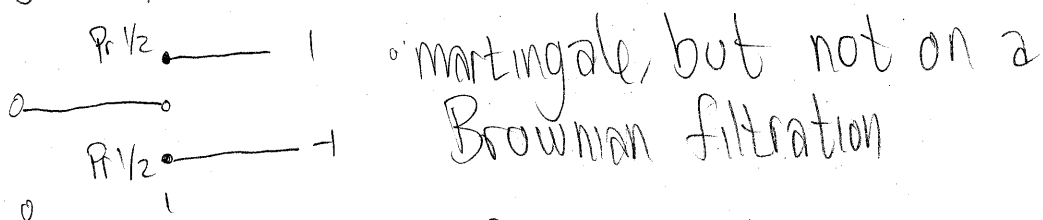 Pr 1/2 1 martingale, but not on a
0 Brownian filtration
Pr 1/2 -1
0 1